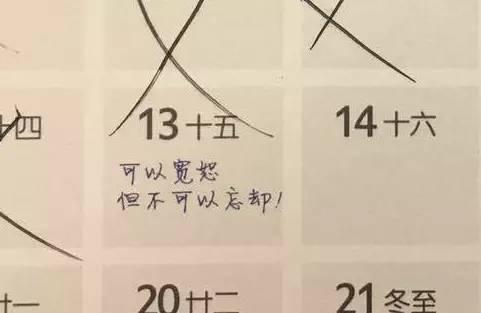 十四
13 十五
14 十六
可以宽恕
但不可以忘却!
廿一
20 廿二
21 冬至